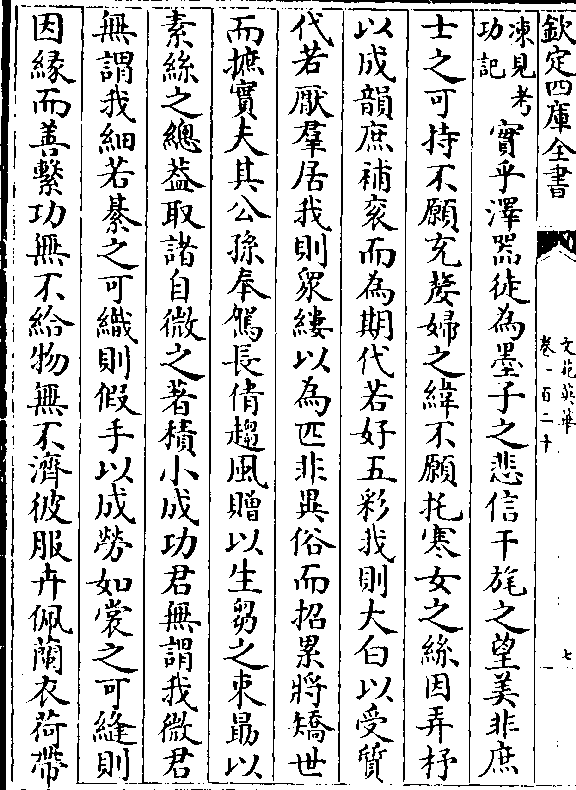 欽定四庫全書
文苑英華
卷一百二十
七
凍見考
功記
實乎澤噐徒為墨子之悲信干旄之望美非庶
士之可持不願充嫠婦之緯不願托寒女之絲因弄杼
以成韻庶補衮而為期代若好五彩我則大白以受質
代若厭羣居我則衆縷以為匹非異俗而招累將矯世
而摭實夫其公孫奉駕長倩趨風贈以生芻之束勗以
素絲之總葢取諸自微之著積小成功君無謂我微君
無謂我細若綦之可織則假手以成勞如裳之可縫則
因緣而善繫功無不給物無不濟彼服卉佩蘭衣荷帶